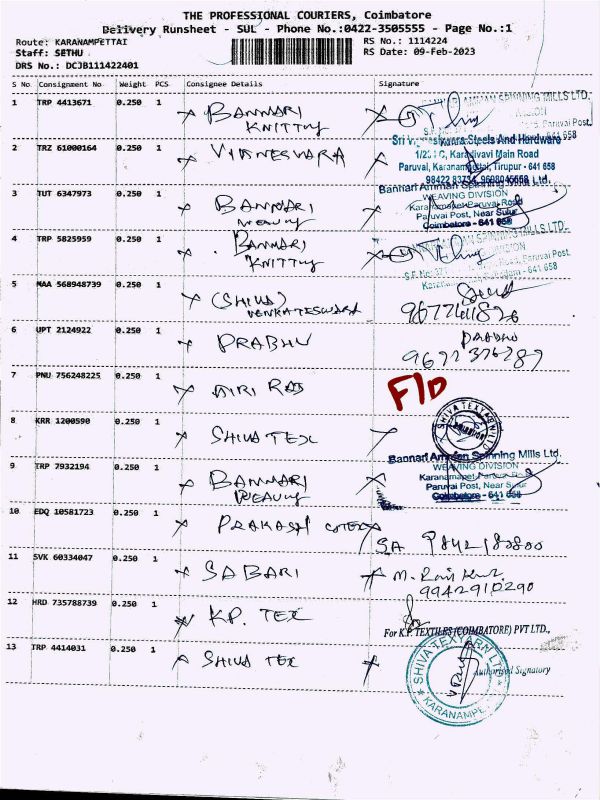 THE PROFESSIONAL COURIERS, Coimbatore
Delivery Runsheet - SUL - Phone No.:0422-3505555 - Page No.:1
Route: KARANAMPETTAI
RS No.: 1114224
Staff: SETHU
RS Date: 09-Feb-2023
DRS No.: DCJB111422401
S No Consignment No Weight PCS Consignee Details Signature
1 TRP 4413671 0.250 1 BANNARI
KNITTING
641 658
2 TRZ 61000164 0.250 1 VIGNESVARA
Steels And Hardware
Karadivavi Main Road
Paruval, Karanampettai, Tirupur - 641 658
3 TUT 6347973 0.250 1 BANNARI
Weaving
Bannari Amman Spinning Mills Ltd.
WEAVING DIVISION
Karanampet Paruvai Road
Paruvai Post, Near Sulur
Coimbatore - 641 658
4 TRP 5825959 0.250 1 BANNARI
KNITTING
SPINNING MILLS LTD.
Paruvai Post.
641 658
5 MAA 568948739 0.250 1 (SHIVA)
VENKATESWARA
6 UPT 2124922 0.250 1 PRABHU
PRABHU
7 PNU 756248225 0.250 1 GIRI RAJ
F/D
8 KRR 1200590 0.250 1 SHIVA TEX
SHIVA TEXYARN LTD
9 TRP 7932194 0.250 1 BANNARI
WEAVING
Bannari Amman Spinning Mills Ltd.
WEAVING DIVISION
Karanampet Paruvai Road
Paruvai Post, Near Sulur
Coimbatore - 641 658
10 EDQ 10581723 0.250 1 PRAKASH COTEX
SA 9842182800
11 SVK 60334047 0.250 1 SABARI
9942910290
12 HRD 735788739 0.250 1 K.P. TEX
For K.P. TEXTILES (COIMBATORE) PVT LTD.,
13 TRP 4414031 0.250 1 SHIVA TEX
SHIVA TEXYARN LTD
KARANAMPET
Authorised Signatory